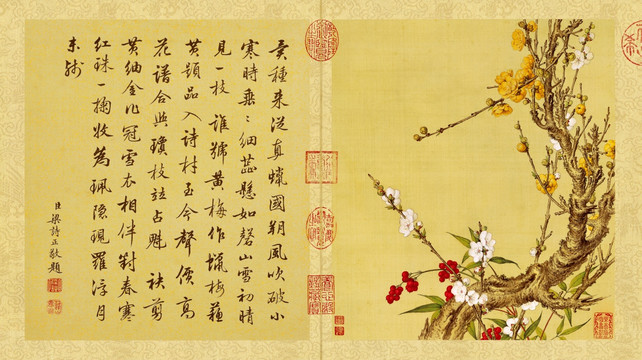 種來從真蠟國朔風吹破小
寒時垂〻細蕊懸如磬山雪初晴
見一枝 誰號黄梅作蠟梅蘓
黄題品入詩材至今聲價高
花譜合與瓊枝竝占魁 袂剪
黄紬金冠雪衣相伴對春寒
紅珠一掬收為珮隱現羅浮月
未殘
臣梁詩正敬題